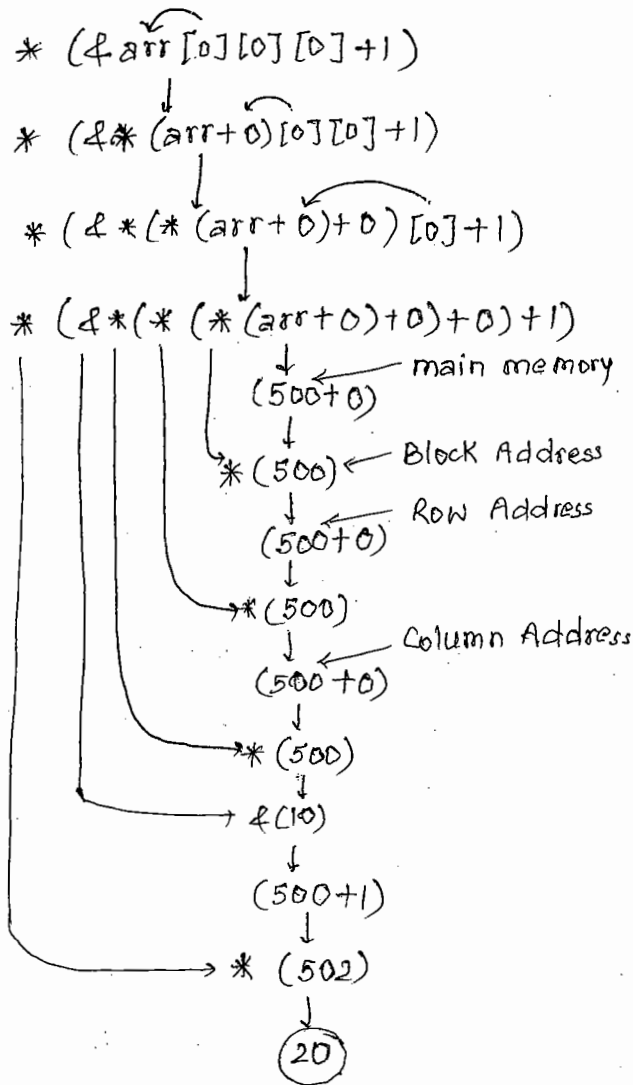 * (&arr[0][0][0]+1)
* (&*(arr+0)[0][0]+1)
* (&*(*(arr+0)+0)[0]+1)
* (&*(*(*(arr+0)+0)+0)+1)
(500+0) main memory
*(500) Block Address
(500+0) Row Address
*(500)
(500+0) Column Address
*(500)
&(10)
(500+1)
* (502)
20